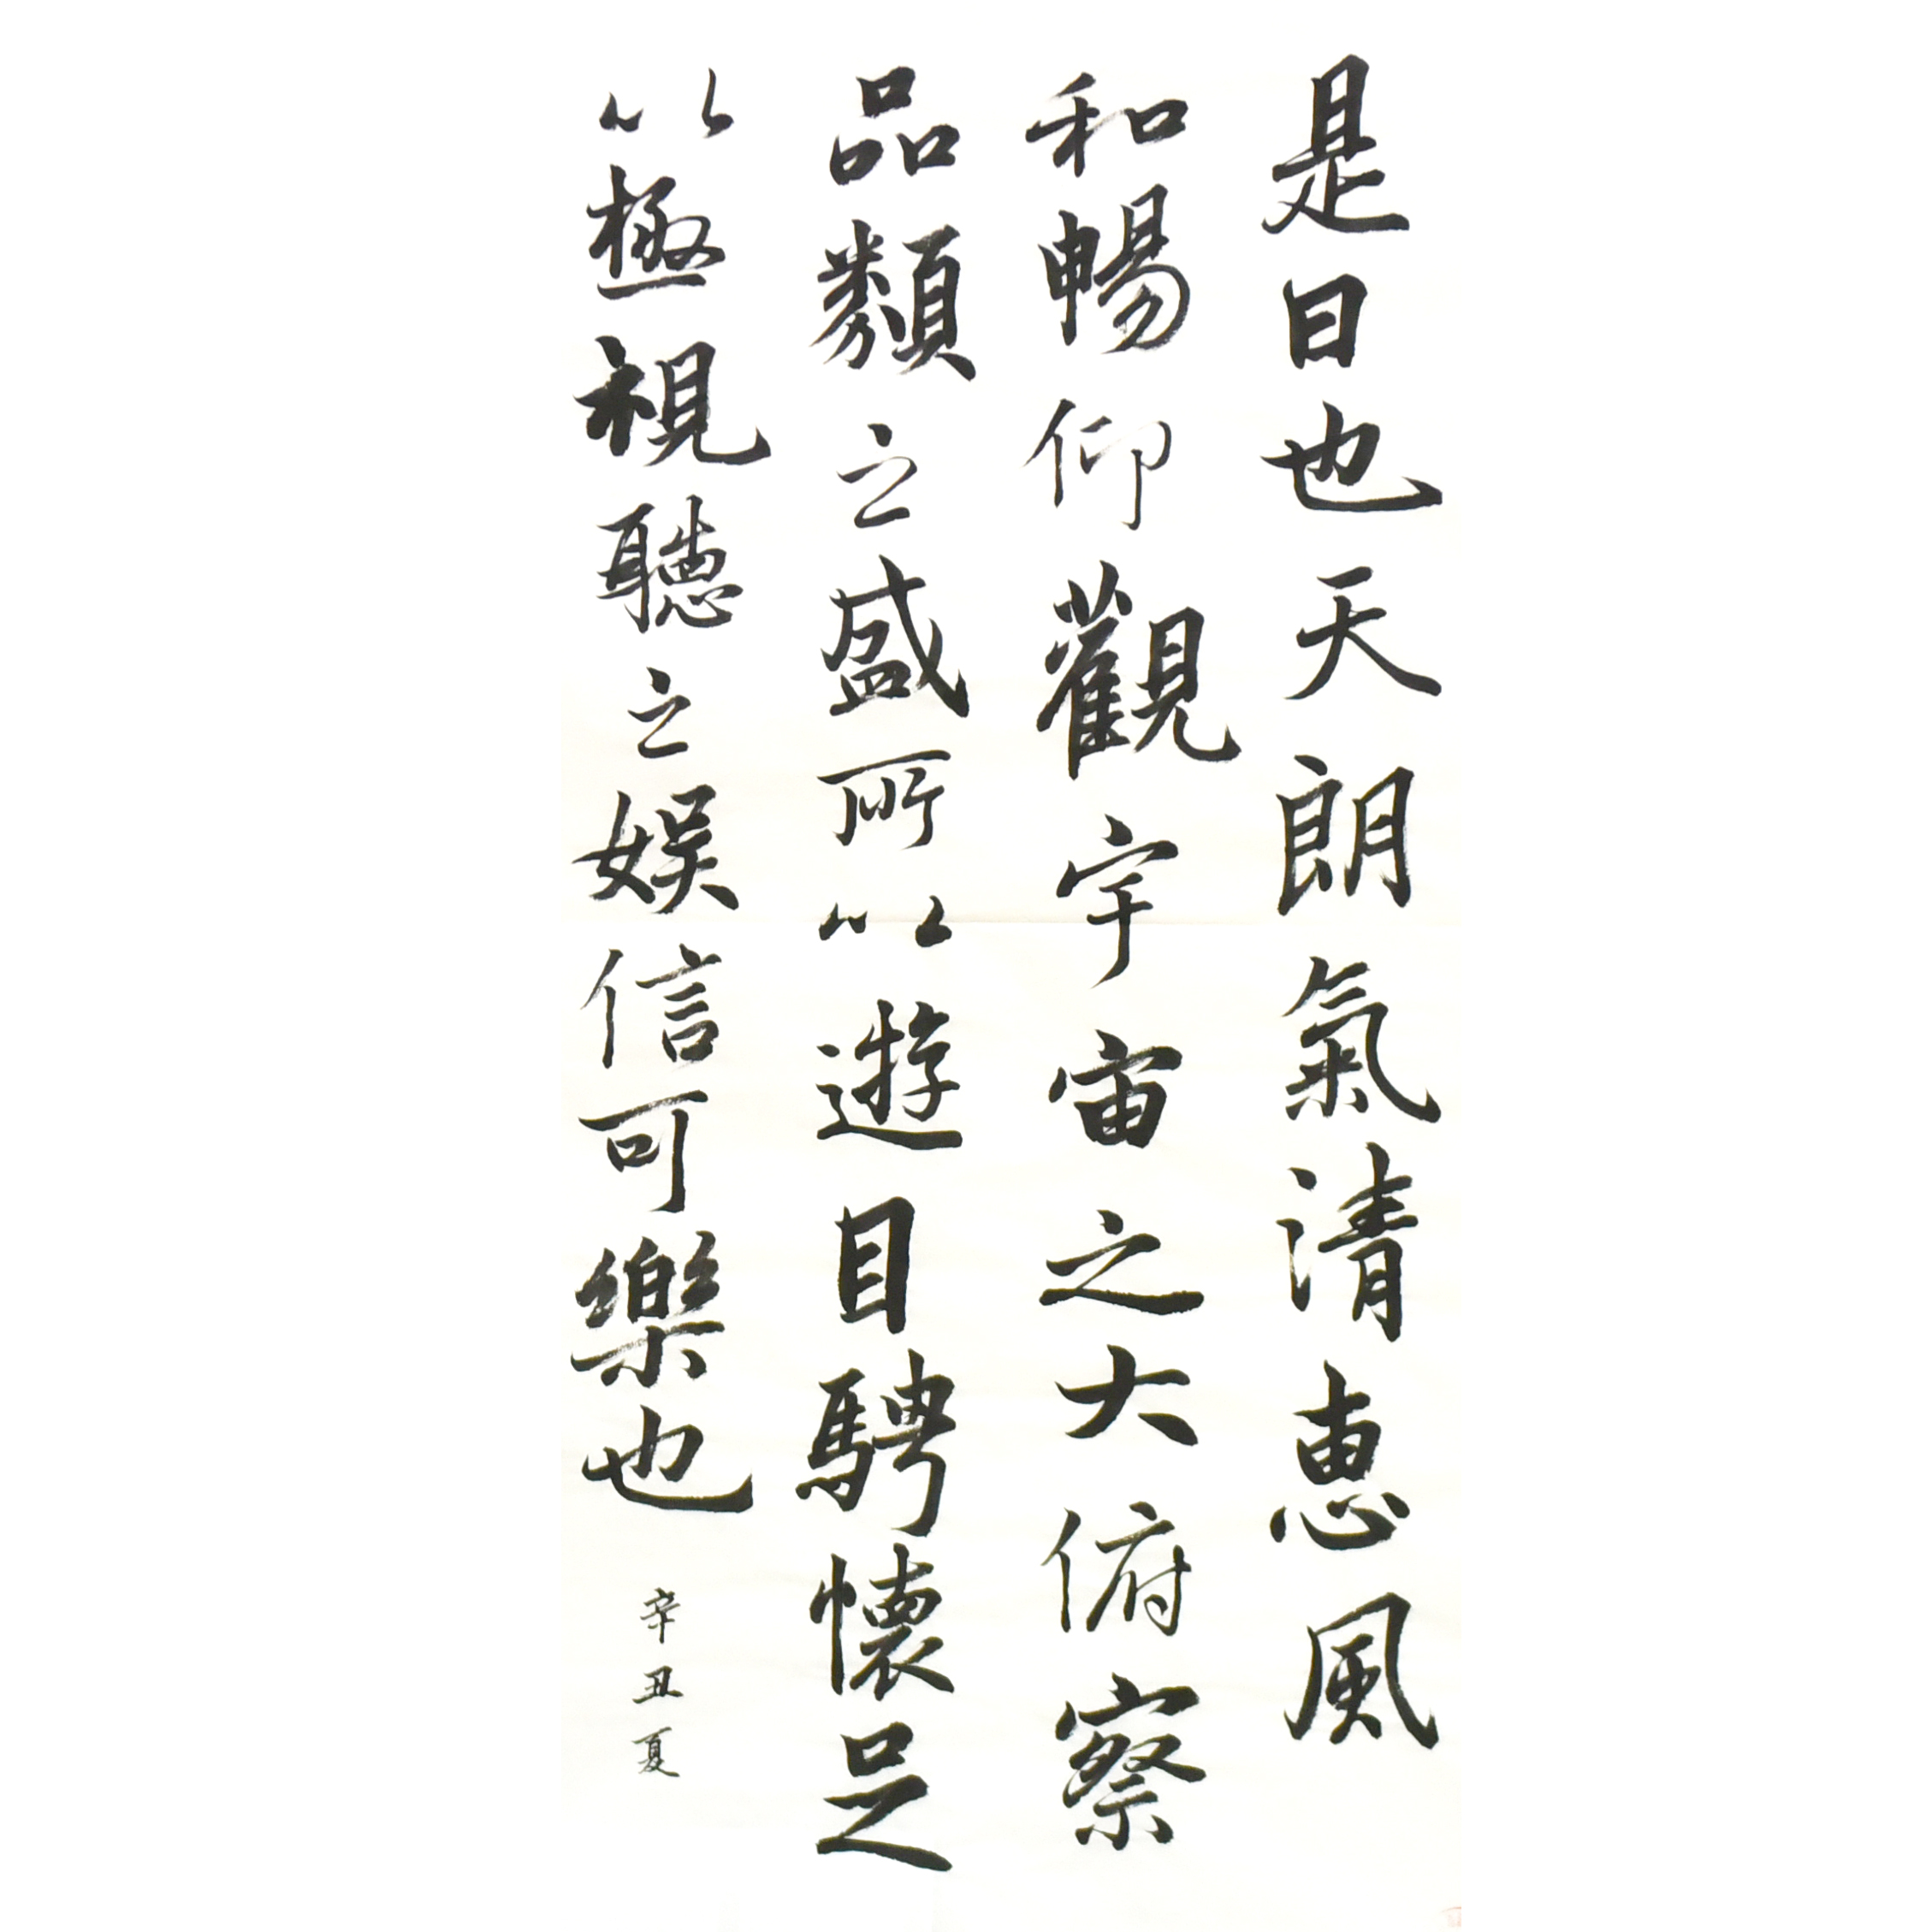 是日也天朗氣清惠風
和暢仰觀宇宙之大俯察
品類之盛所以遊目騁懷足
以極視聽之娛信可樂也
辛丑夏